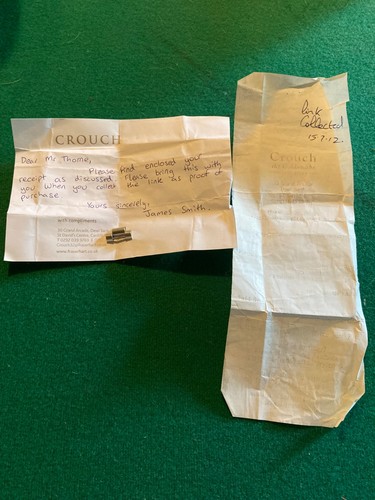 CROUCH
Dear Mr Thorne,
Please find enclosed your
receipt as discussed. Please bring this with
you when you collect the link as proof of
purchase
Yours sincerely,
James Smith.
with compliments
link
Collected
15.7.12.
Crouch